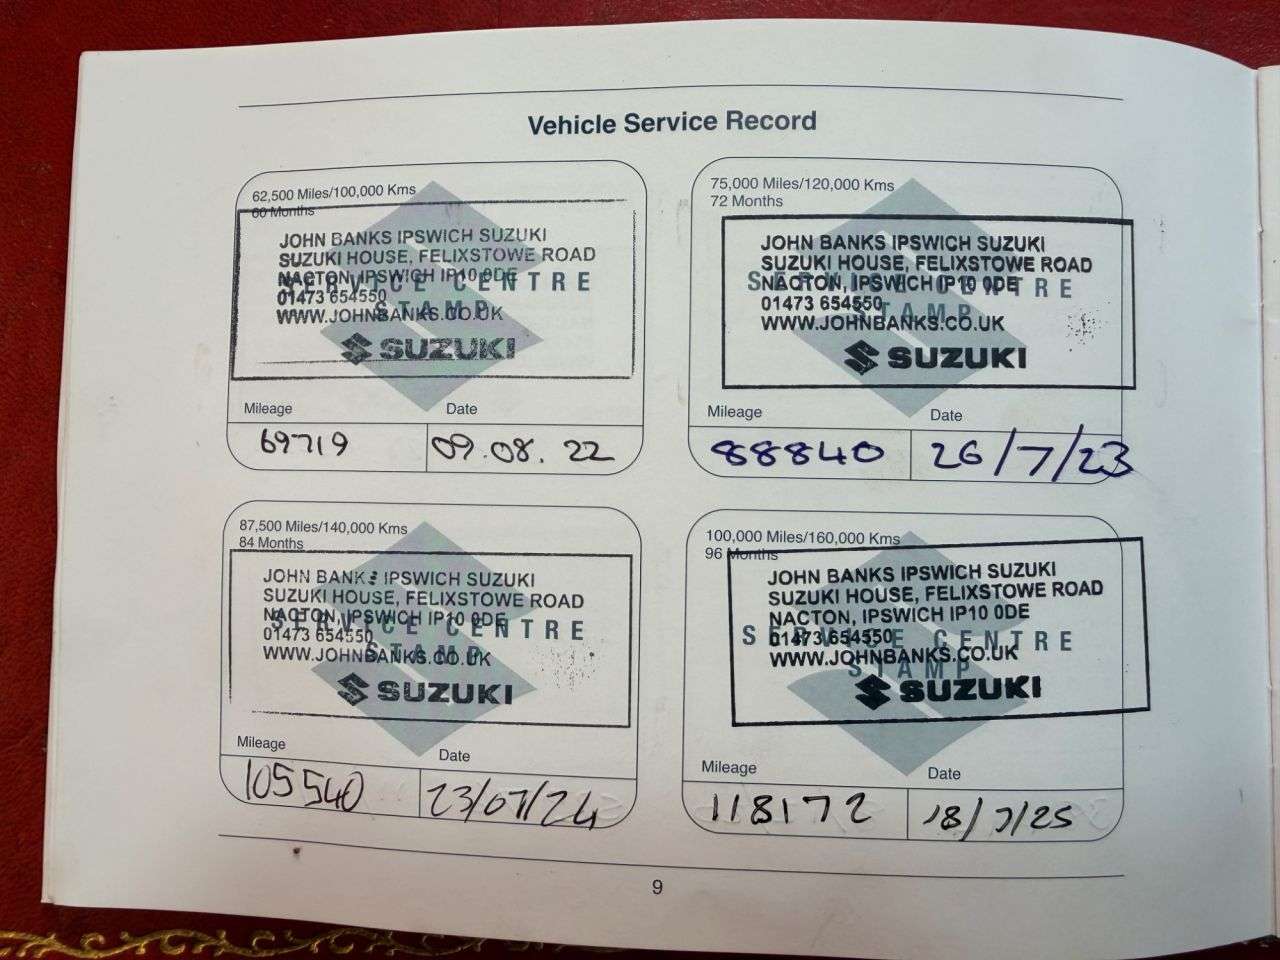 Vehicle Service Record
62,500 Miles/100,000 Kms
60 Months
JOHN BANKS IPSWICH SUZUKI
SUZUKI HOUSE, FELIXSTOWE ROAD
NACTON, IPSWICH IP10 0DE
SERVICE CENTRE
01473 654550
STAMP
WWW.JOHNBANKS.CO.UK
SUZUKI
Mileage Date
69719 09.08.22
75,000 Miles/120,000 Kms
72 Months
JOHN BANKS IPSWICH SUZUKI
SUZUKI HOUSE, FELIXSTOWE ROAD
NACTON, IPSWICH IP10 0DE
SERVICE CENTRE
01473 654550
STAMP
WWW.JOHNBANKS.CO.UK
SUZUKI
Mileage Date
88840 26/7/23
87,500 Miles/140,000 Kms
84 Months
JOHN BANKS IPSWICH SUZUKI
SUZUKI HOUSE, FELIXSTOWE ROAD
NACTON, IPSWICH IP10 0DE
SERVICE CENTRE
01473 654550
STAMP
WWW.JOHNBANKS.CO.UK
SUZUKI
Mileage Date
105540 23/07/24
100,000 Miles/160,000 Kms
96 Months
JOHN BANKS IPSWICH SUZUKI
SUZUKI HOUSE, FELIXSTOWE ROAD
NACTON, IPSWICH IP10 0DE
01473 654550
SERVICE CENTRE
WWW.JOHNBANKS.CO.UK
STAMP
SUZUKI
Mileage Date
118172 18/7/25
9